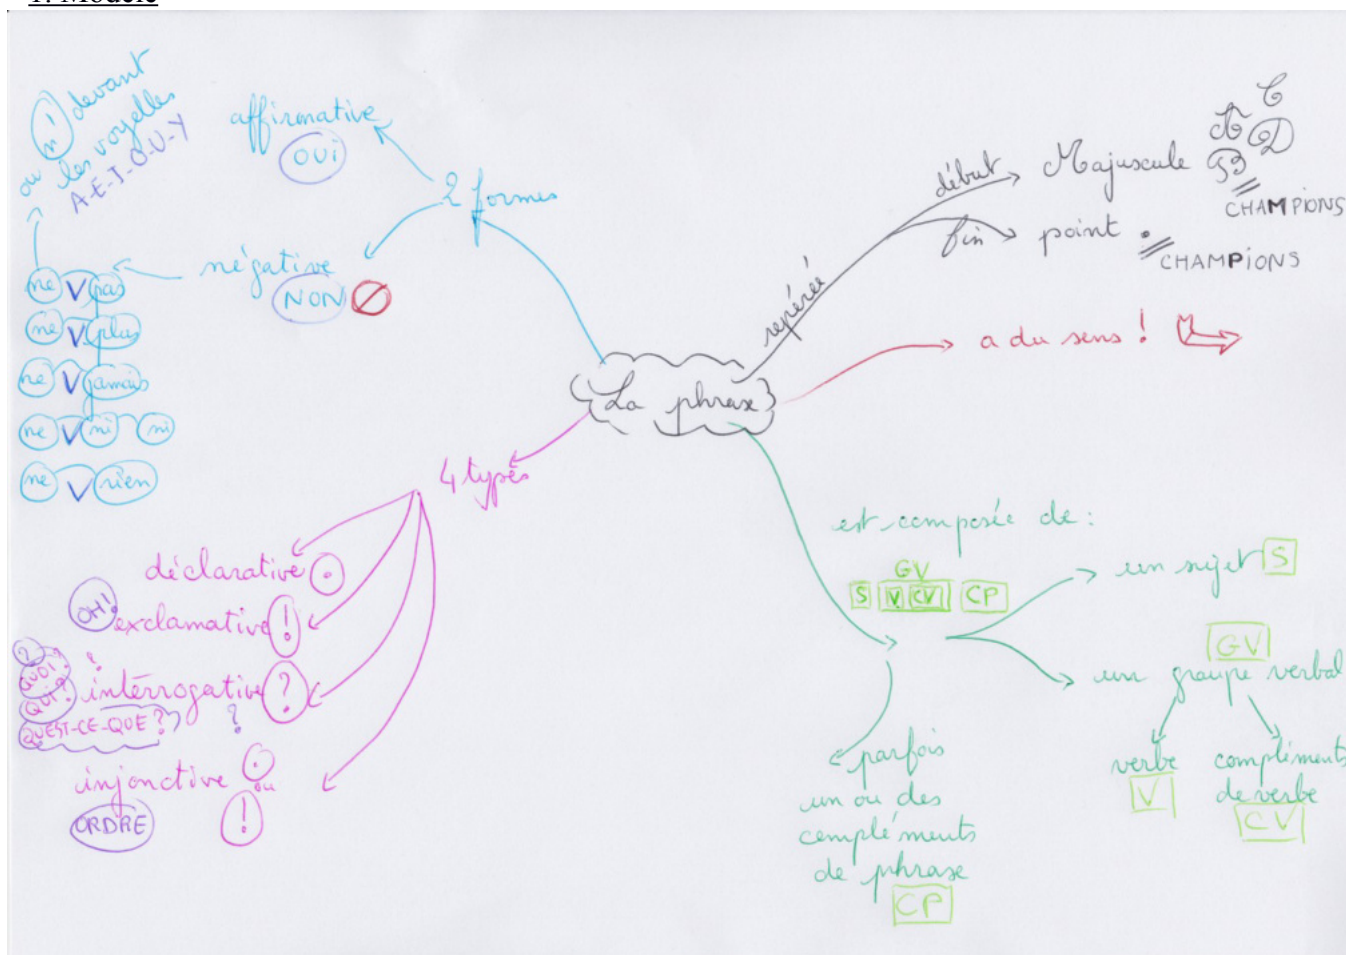 1. Modèle
La phrase
repérée
début
Majuscule
A
B
C
D
CHAMPIONS
fin
point .
CHAMPIONS
a du sens !
est composée de :
GV
S V CV CP
un sujet S
GV
un groupe verbal
verbe
V
compléments
de verbe
CV
parfois
un ou des
compléments
de phrase
CP
4 types
déclarative .
OH!
exclamative !
?
QUOI?
QUI?
?
intérrogative ?
QUEST-CE-QUE ?
?
injonctive . ou
!
ORDRE
2 formes
affirmative
OUi
négative
NON
ne V pas
ne V plus
ne V jamais
ne V ni ni
ne V rien
ou n' devant
les voyelles
A-E-I-O-U-Y